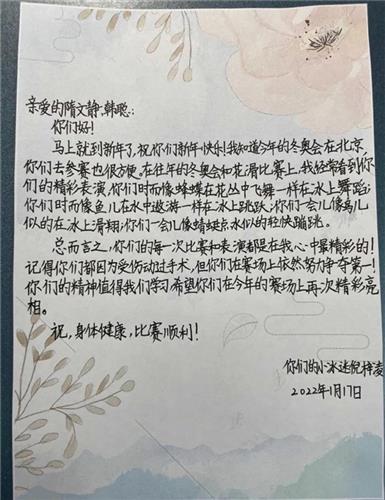 亲爱的隋文静、韩聪:
你们好!
马上就到新年了,祝你们新年快乐!我知道今年的冬奥会在北京,
你们去参赛也很方便,在往年的冬奥会和花滑比赛上,我经常看到你
们的精彩表演,你们时而像蝴蝶在花丛中飞舞一样在冰上舞蹈;
你们时而像鱼儿在水中遨游一样在冰上跳跃;你们一会儿像鸟儿
似的在冰上滑翔;你们一会儿像蜻蜓点水似的轻快蹦跳。
总而言之,你们的每一次比赛和表演都是在我心中最精彩的!
记得你们都因为受伤动过手术,但你们在赛场上依然努力争夺第一!
你们的精神值得我们学习,希望你们在今年的赛场上再次精彩亮
相。
祝,身体健康,比赛顺利!
你们的小冰迷倪梓凌
2022年1月17日